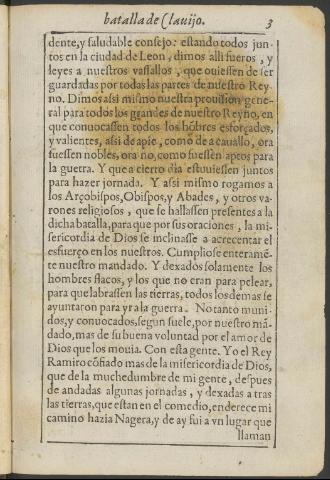 batalla de Clauijo. 3
dente, y saludable consejo: estando todos jun-
tos en la ciudad de Leon, dimos alli fueros, y
leyes a nuestros vassallos, que ouiessen de ser
guardadas por todas las partes de nuestro Rey
no. Dimos assi mismo nuestra prouisiõ gene-
ral para todos los grandes de nuestro Reyno, en
que conuocassen todos los hõbres esforçados,
y valientes, assi de apie, como de a cauallo, ora
fuessen nobles, ora no, como fuessẽ aptos para
la guerra. Y que a cierto dia estuuiessen juntos
para hazer jornada. Y assi mismo rogamos a
los Arçobispos, Obispos, y Abades, y otros va-
rones religiosos, que se hallassen presentes a la
dicha batalla, para que por sus oraciones, la mi-
sericordia de Dios se inclinasse a acrecentar el
esfuerço en los nuestros. Cumpliose enteramẽ-
te nuestro mandado. Y dexados solamente los
hombres flacos, y los que no eran para pelear,
para que labrassen las tierras, todos los demas se
ayuntaron para yr a la guerra. No tanto muni-
dos, y conuocados, segun suele, por nuestro mã-
dado, mas de su buena voluntad por el amor de
Dios que los mouia. Con esta gente. Yo el Rey
Ramiro cõfiado mas de la misericordia de Dios,
que de la muchedumbre de mi gente, despues
de andadas algunas jornadas, y dexadas a tras
las tierras, que estan en el comedio, enderece mi
camino hazia Nagera, y de ay fui a vn lugar que
llaman